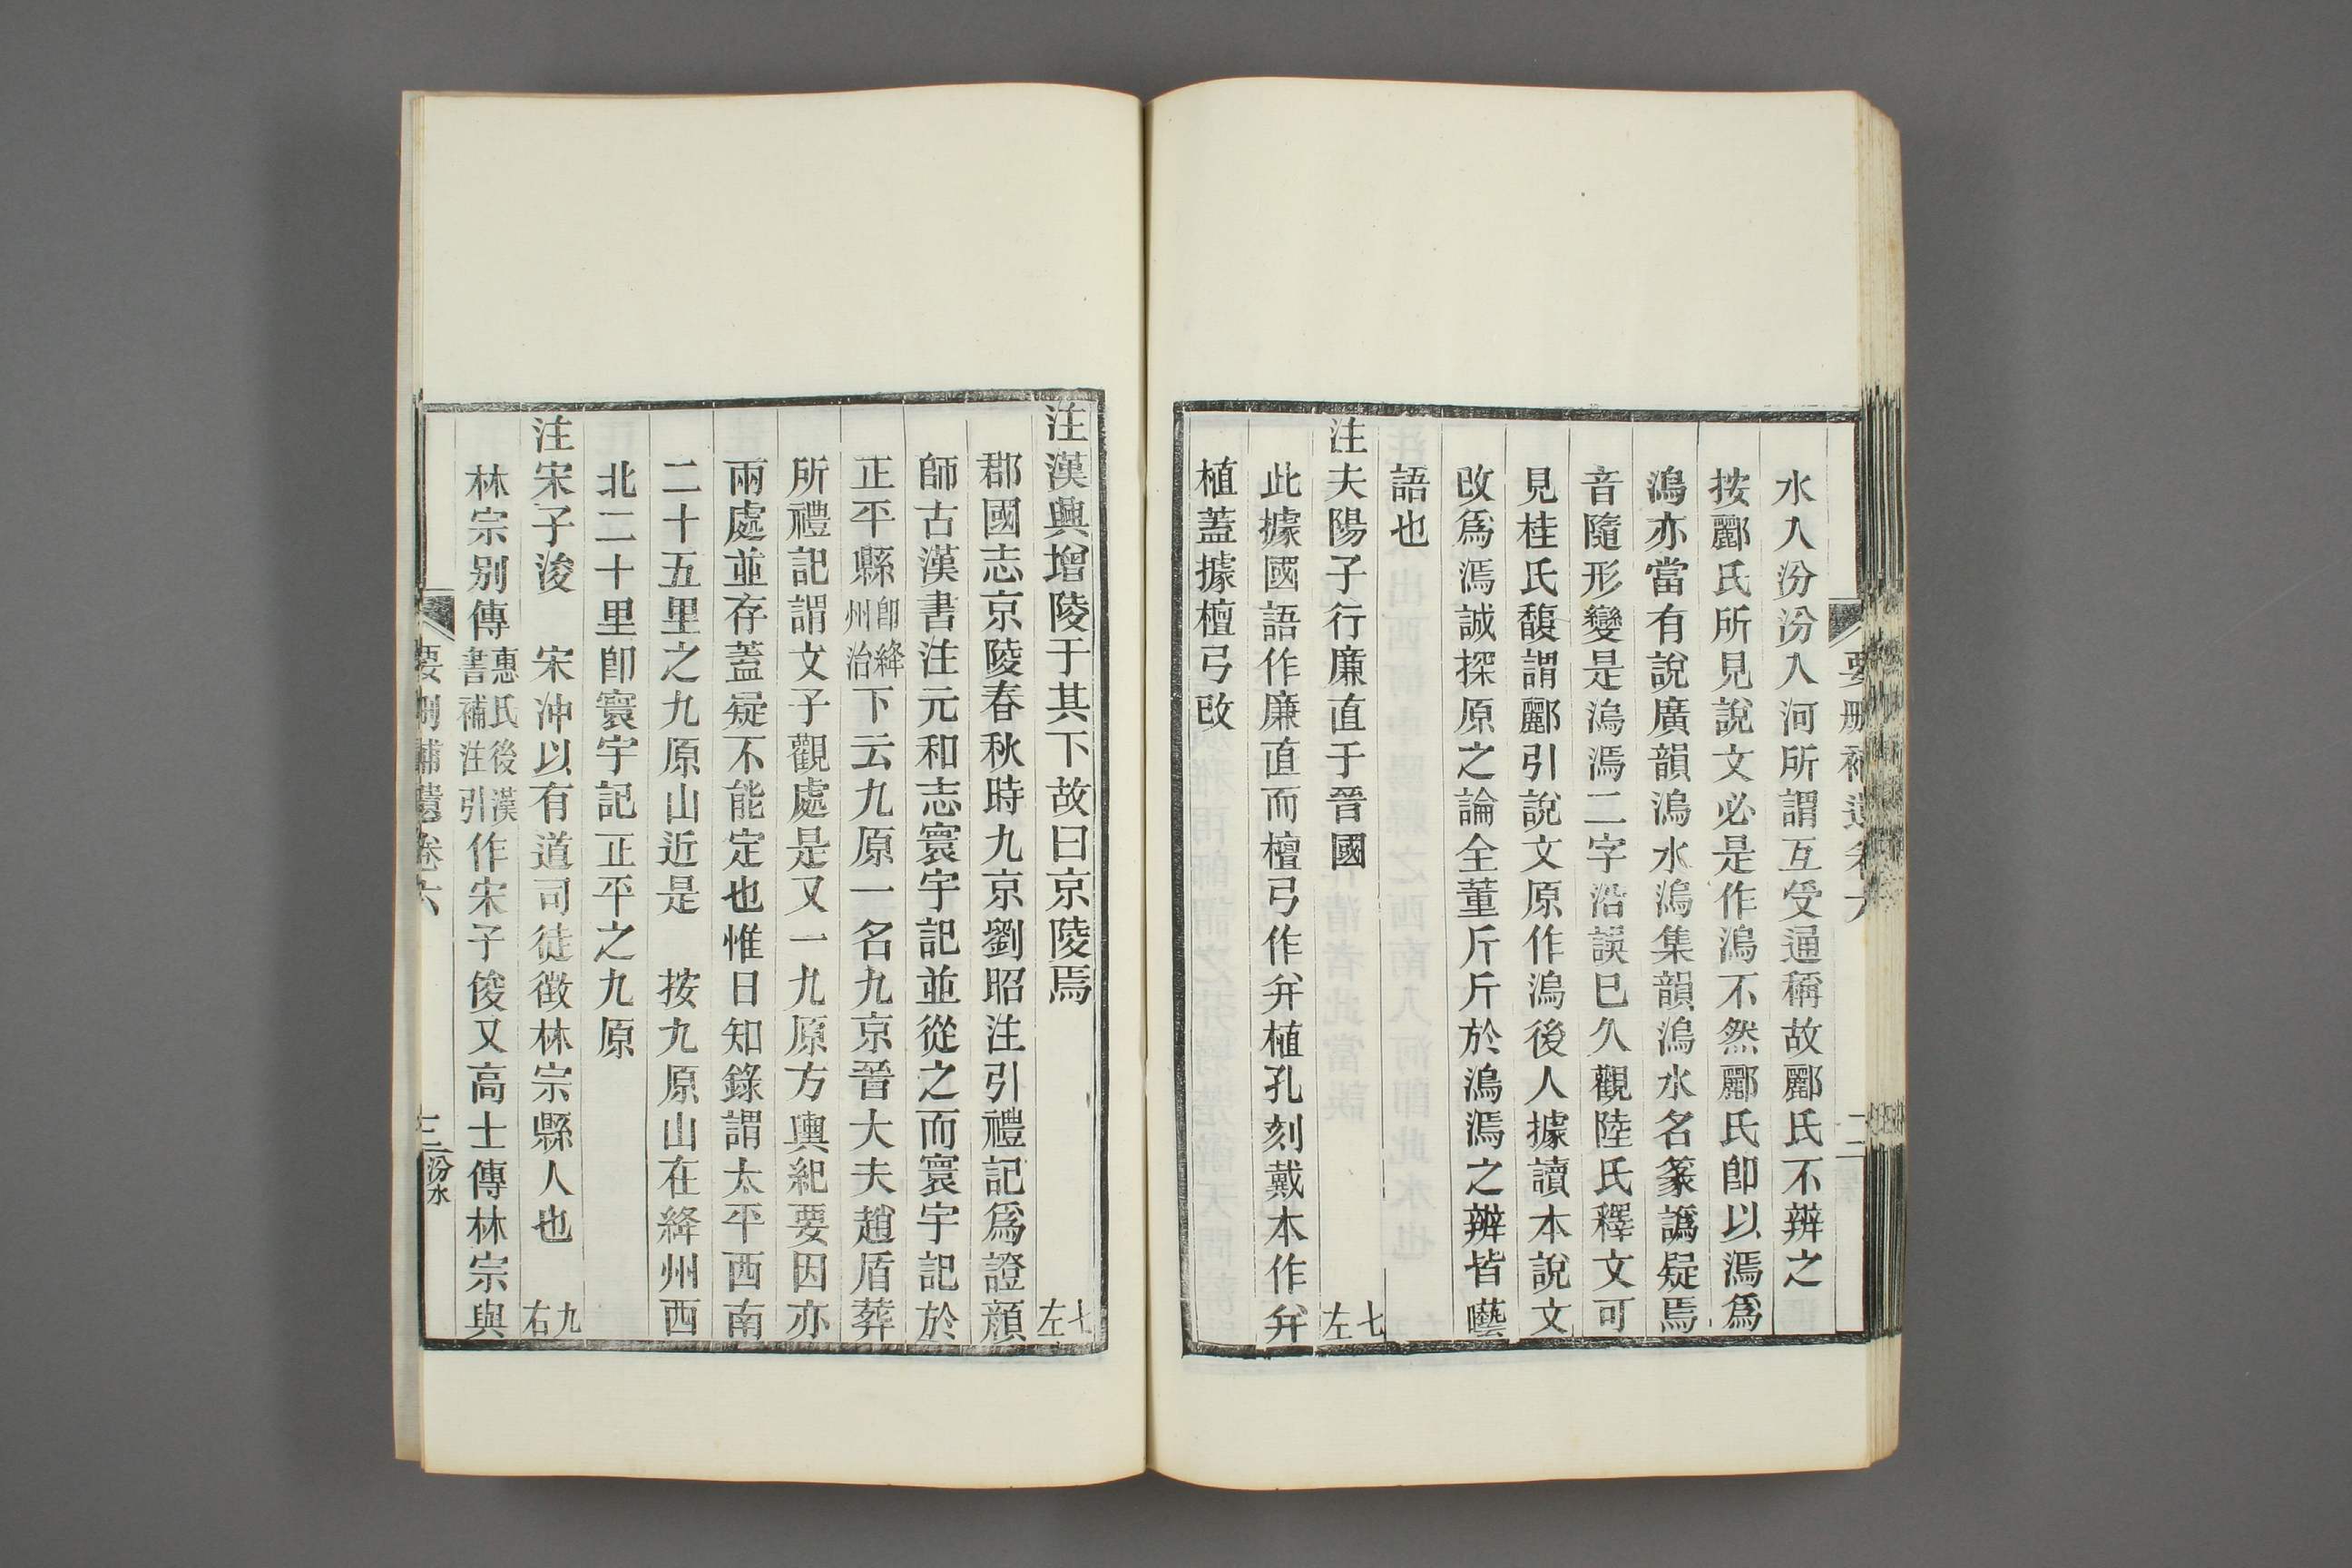 要刪補遺卷六 二
水入汾汾入河所謂互受通稱故酈氏不辨之
按酈氏所見說文必是作潙不然酈氏卽以漹爲
潙亦當有說廣韻潙水潙集韻潙水名篆譌疑焉
音隨形變是潙漹二字沿誤已久觀陸氏釋文可
見桂氏馥謂酈引說文原作潙後人據讀本說文
改爲漹誠探原之論全董斤斤於潙漹之辨皆囈
語也
注夫陽子行廉直于晉國 七左
此據國語作廉直而檀弓作幷植孔刻戴本作幷
植蓋據檀弓改
注漢興增陵于其下故曰京陵焉 七左
郡國志京陵春秋時九京劉昭注引禮記爲證顏
師古漢書注元和志寰宇記並從之而寰宇記於
正平縣卽絳州治下云九原一名九京晉大夫趙盾葬
所禮記謂文子觀處是又一九原方輿紀要因亦
兩處並存蓋疑不能定也惟日知錄謂太平西南
二十五里之九原山近是 按九原山在絳州西
北二十里卽寰宇記正平之九原
注宋子浚 宋沖以有道司徒徵林宗縣人也 九右
林宗別傳惠氏後漢書補注引作宋子俊又高士傳林宗與
要刪補遺卷六 三 汾水